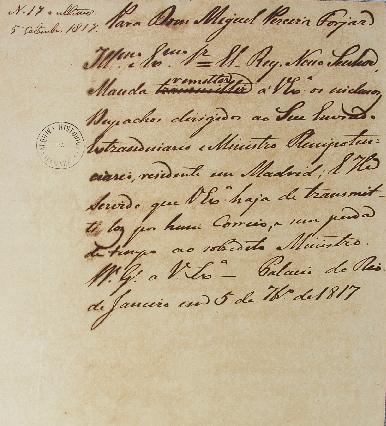 N. 17 e ultimo
5 Setembro 1817.
Para Dom Miguel Pereira Forjaz
Illmo. e Exmo. Sr. = El Rey, Nosso Senhor,
Manda transmitter remetter á V. Exa. os inclusos
Despachos dirigidos ao Seu Enviado
Extraordinario e Ministro Plenipoten-
ciario, residente em Madrid; E He
Servido, que V. Exa. haja de transmit-
ti-los por hum Correio, e sem perda
de tempo ao sobredito Ministro.
De. Ge. a V. Exa. = Palacio do Rio
de Janeiro em 5 de 7bro. de 1817